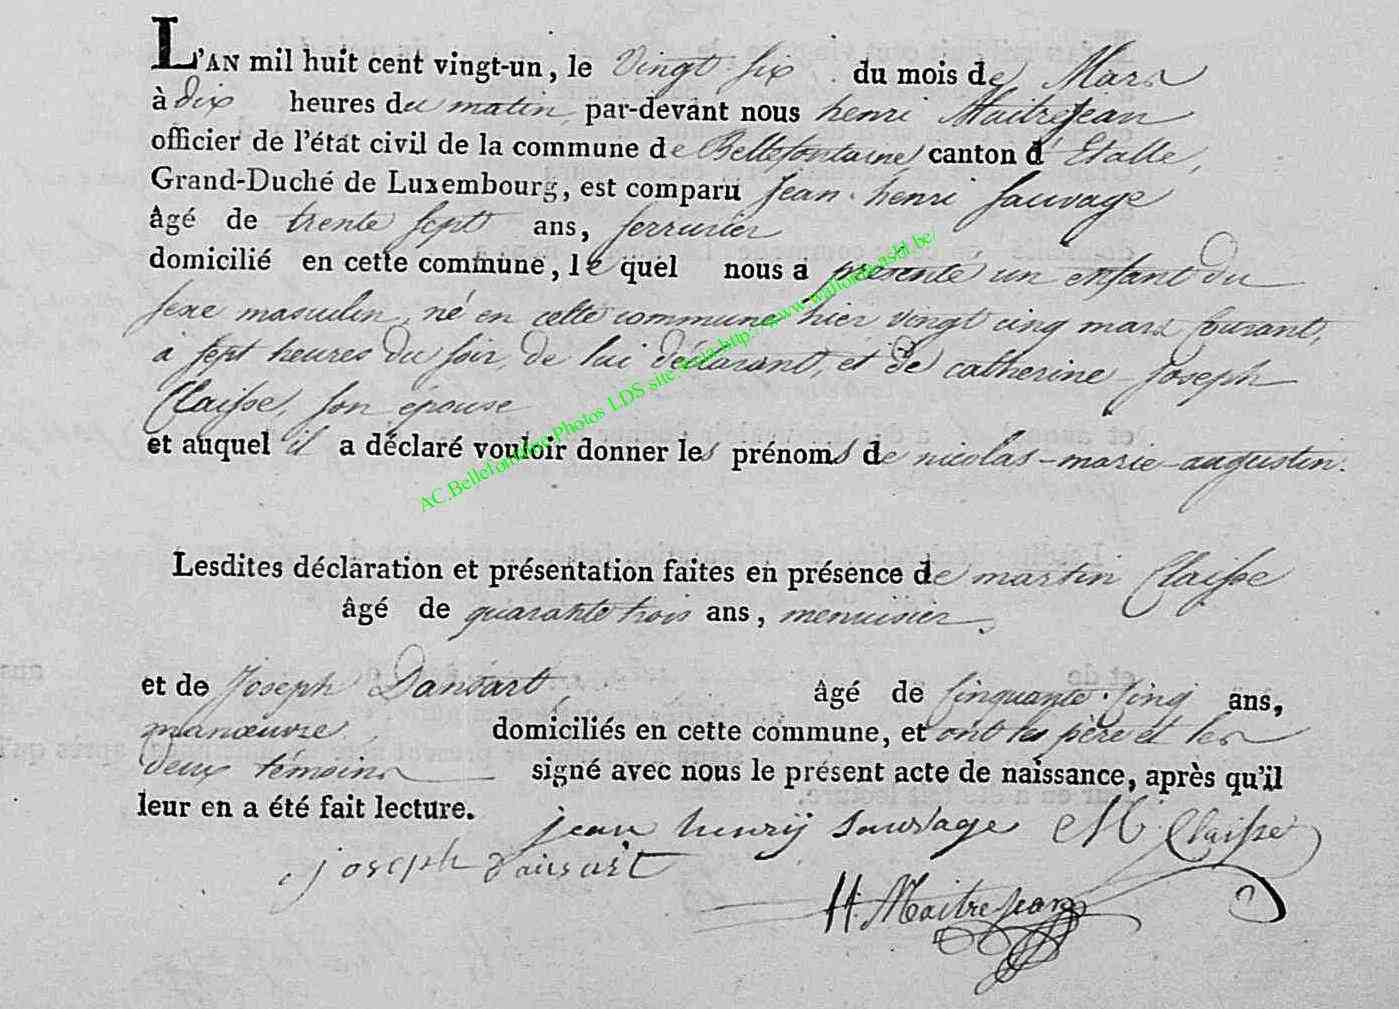 L'AN mil huit cent vingt-un, le Vingt six du mois de Mars
à dix heures du matin, par-devant nous henri Maitrejean
officier de l'état civil de la commune de Bellefontaine canton d'Etalle,
Grand-Duché de Luxembourg, est comparu jean henri Sauvage
âgé de trente sept ans, serrurier
domicilié en cette commune, le quel nous a présenté un enfant du
sexe masculin, né en cette commune hier vingt cinq mars courant,
a sept heures du soir, de lui déclarant, et de catherine Joseph
Claisse, son épouse
et auquel il a déclaré vouloir donner les prénoms de nicolas-marie-augustin.
AC.Bellefontaine Photos LDS site
Lesdites déclaration et présentation faites en présence de martin Claisse
âgé de quarante trois ans, menuisier,
et de Joseph Dansart, âgé de Cinquante-Cinq ans,
manœuvre, domiciliés en cette commune, et ont les père et les
deux témoins signé avec nous le présent acte de naissance, après qu'il
leur en a été fait lecture.
jean henrÿ Sauvage M Claisse
joseph dansart
H. Maitrejean